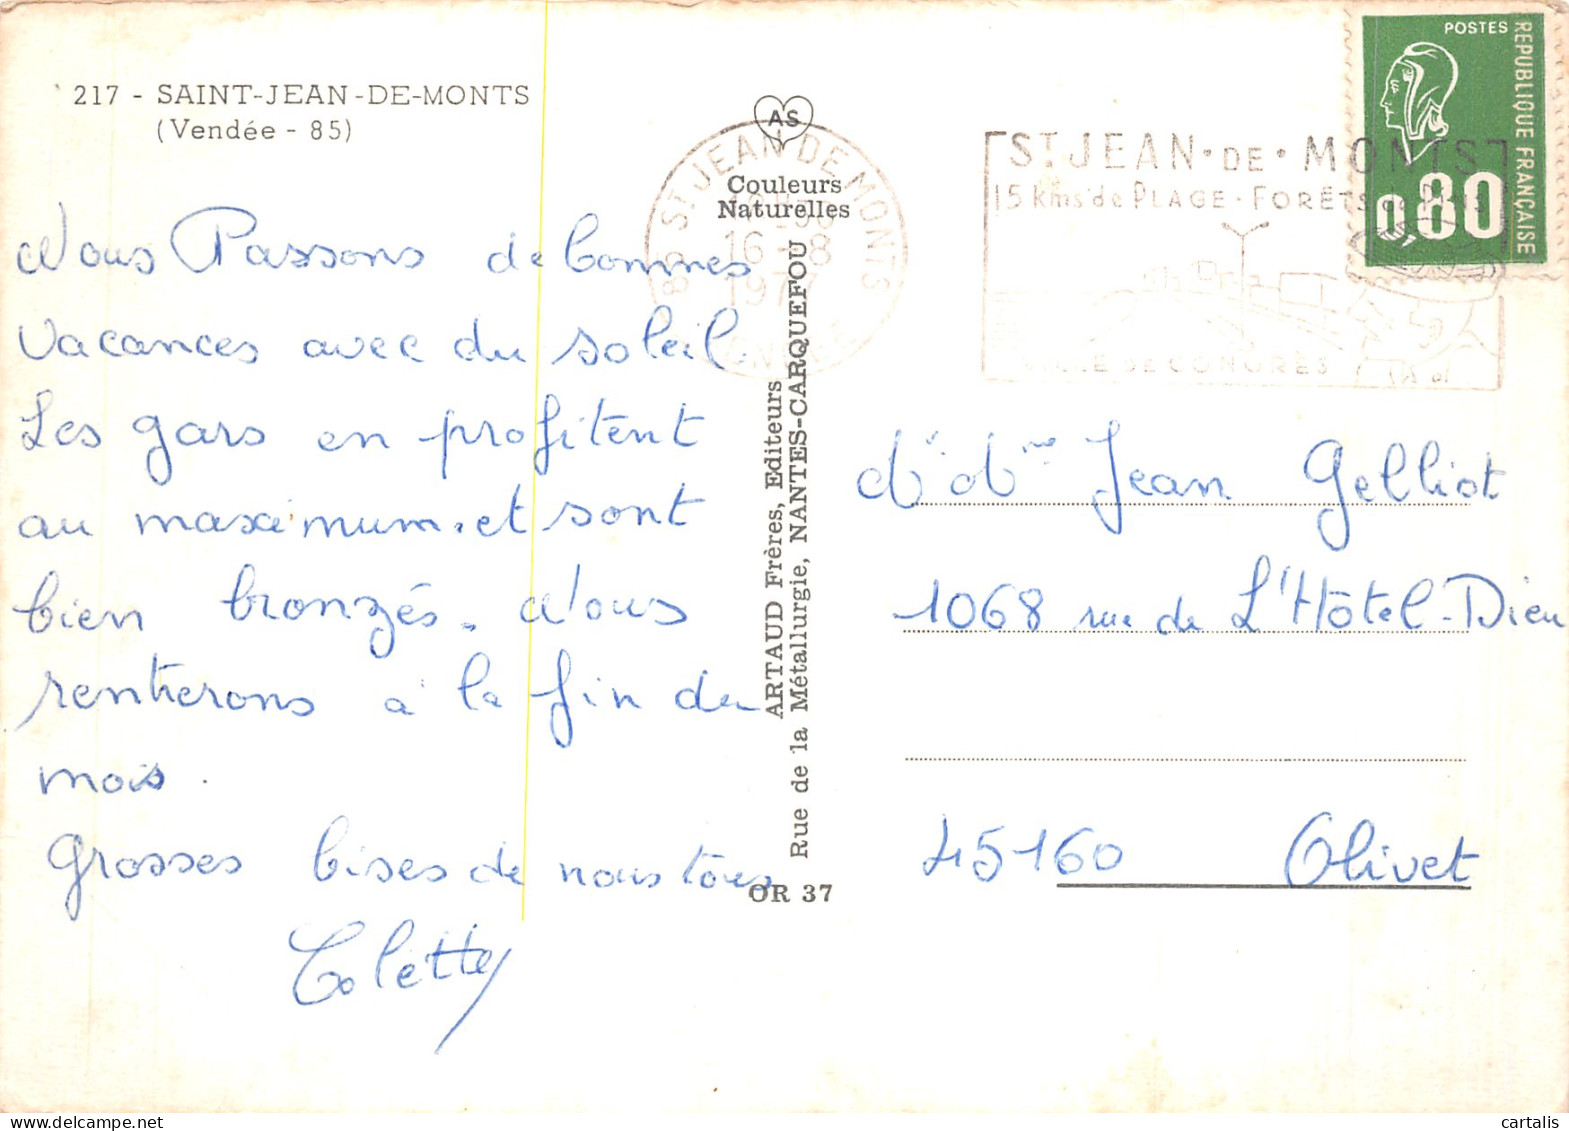 217 - SAINT-JEAN-DE-MONTS
(Vendée - 85)
Nous Passons de bonnes
vacances avec du soleil.
Les gars en profitent
au maximum. et sont
bien bronzés. Nous
rentrerons à la fin du
mois.
Grosses bises de nous tous
Colette
AS
Couleurs
Naturelles
ARTAUD Frères, Editeurs
Rue de la Métallurgie, NANTES-CARQUEFOU
OR 37
85 ST JEAN DE MONTS
16 - 8
1977
ST JEAN • DE • MONTS
15 kms de PLAGE - FORÊTS de PINS
VILLE DE CONGRÈS
POSTES
REPUBLIQUE FRANÇAISE
0,80
Mr Mme Jean Gelliot
1068 rue de L'Hôtel-Dieu
45160 Olivet
cartalis